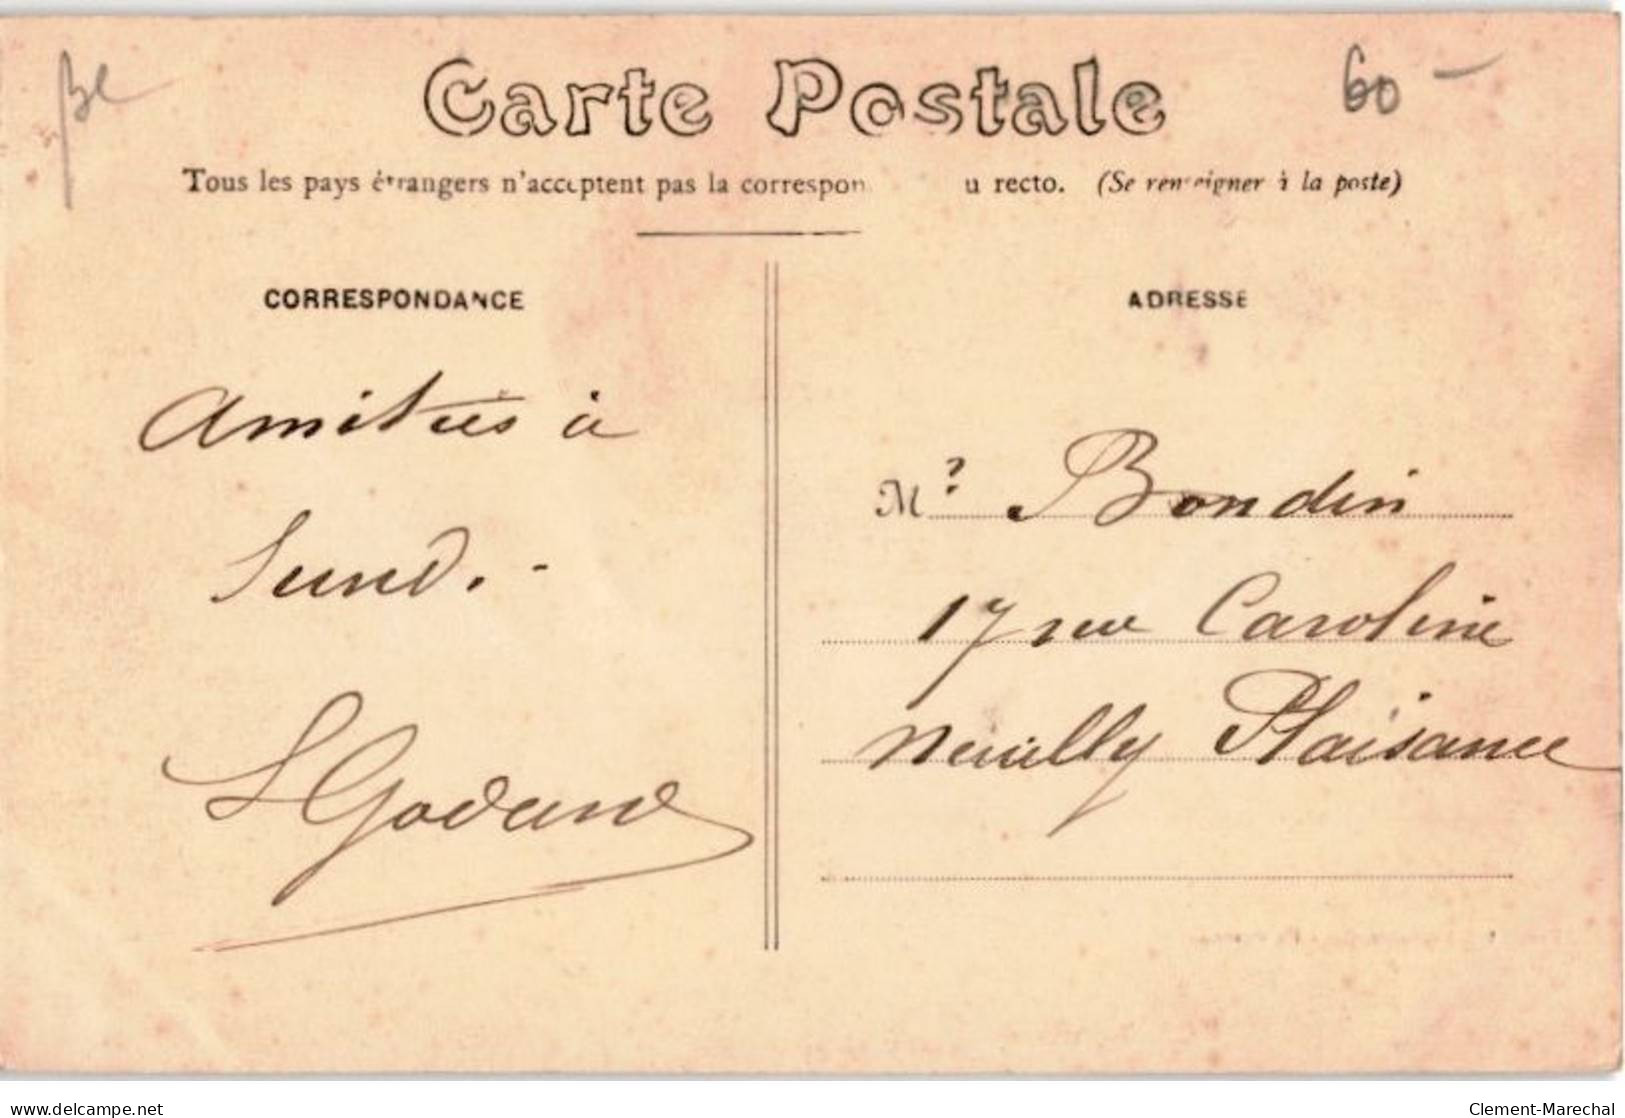 60 -
Carte Postale
Tous les pays étrangers n'acceptent pas la correspon u recto. (Se renseigner à la poste)
CORRESPONDANCE
Amitiés à
Lund. -
L Godard
ADRESSE
M. Bondin
17 rue Caroline
Neuilly Plaisance
delcampe.net
Clement-Marechal